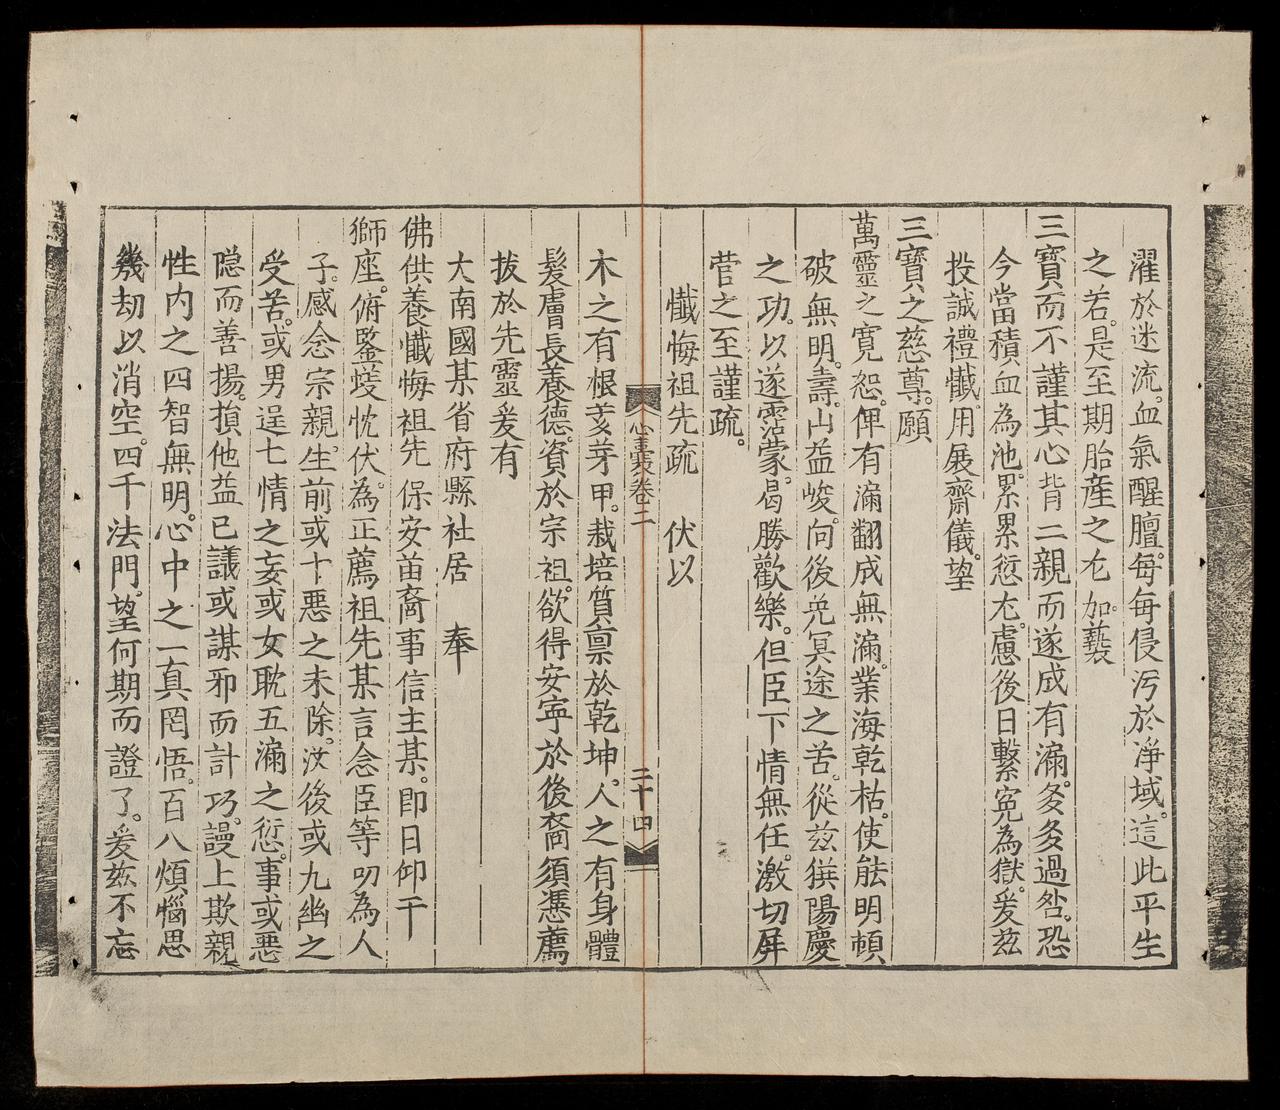 濯於迷流。血氣醒膻。每每侵汚於凈域。這此平生
之若。是至期胎產之尤。加褻
三寶而不謹其心。背二親而遂成有漏。多多過咎。恐
今當積血為池。累累愆尤。慮後日繫寃為獄。爰茲
投誠禮懺。用展齋儀。望
三寶之慈尊。願
萬靈之寬恕。俾有漏翻成無漏。業海乾枯。使能明頓
破無明。壽山益峻。向後免冥途之苦。從茲撰陽慶
之功。以遂霑蒙。曷勝歡樂。但臣下情無任。激切屏
营之至謹疏。
懺悔祖先疏　伏以
心囊卷二　二十四
木之有根荄芽甲。栽培質禀於乾坤。人之有身體
髮膚長養德。資於宗祖。欲得安寧於後裔須憑薦
拔於先靈爰有
大南國某省府縣社居　奉
佛供養懺悔祖先保安苗裔事信主某。卽日仰干
獅座。俯鑒悛忱伏。為正薦祖先某言念臣等叨為人
子。感念宗親。生前或十惡之未除。沒後或九幽之
受苦。或男逞七情之妄或女耽五漏之愆。事或惡
隱而善揚。損他益已議或謀邪而計巧。謾上欺親
性內之四智無明。心中之一真罔悟。百八煩惱思
幾劫以消空。四千法門。望何期而證了。爰茲不忘